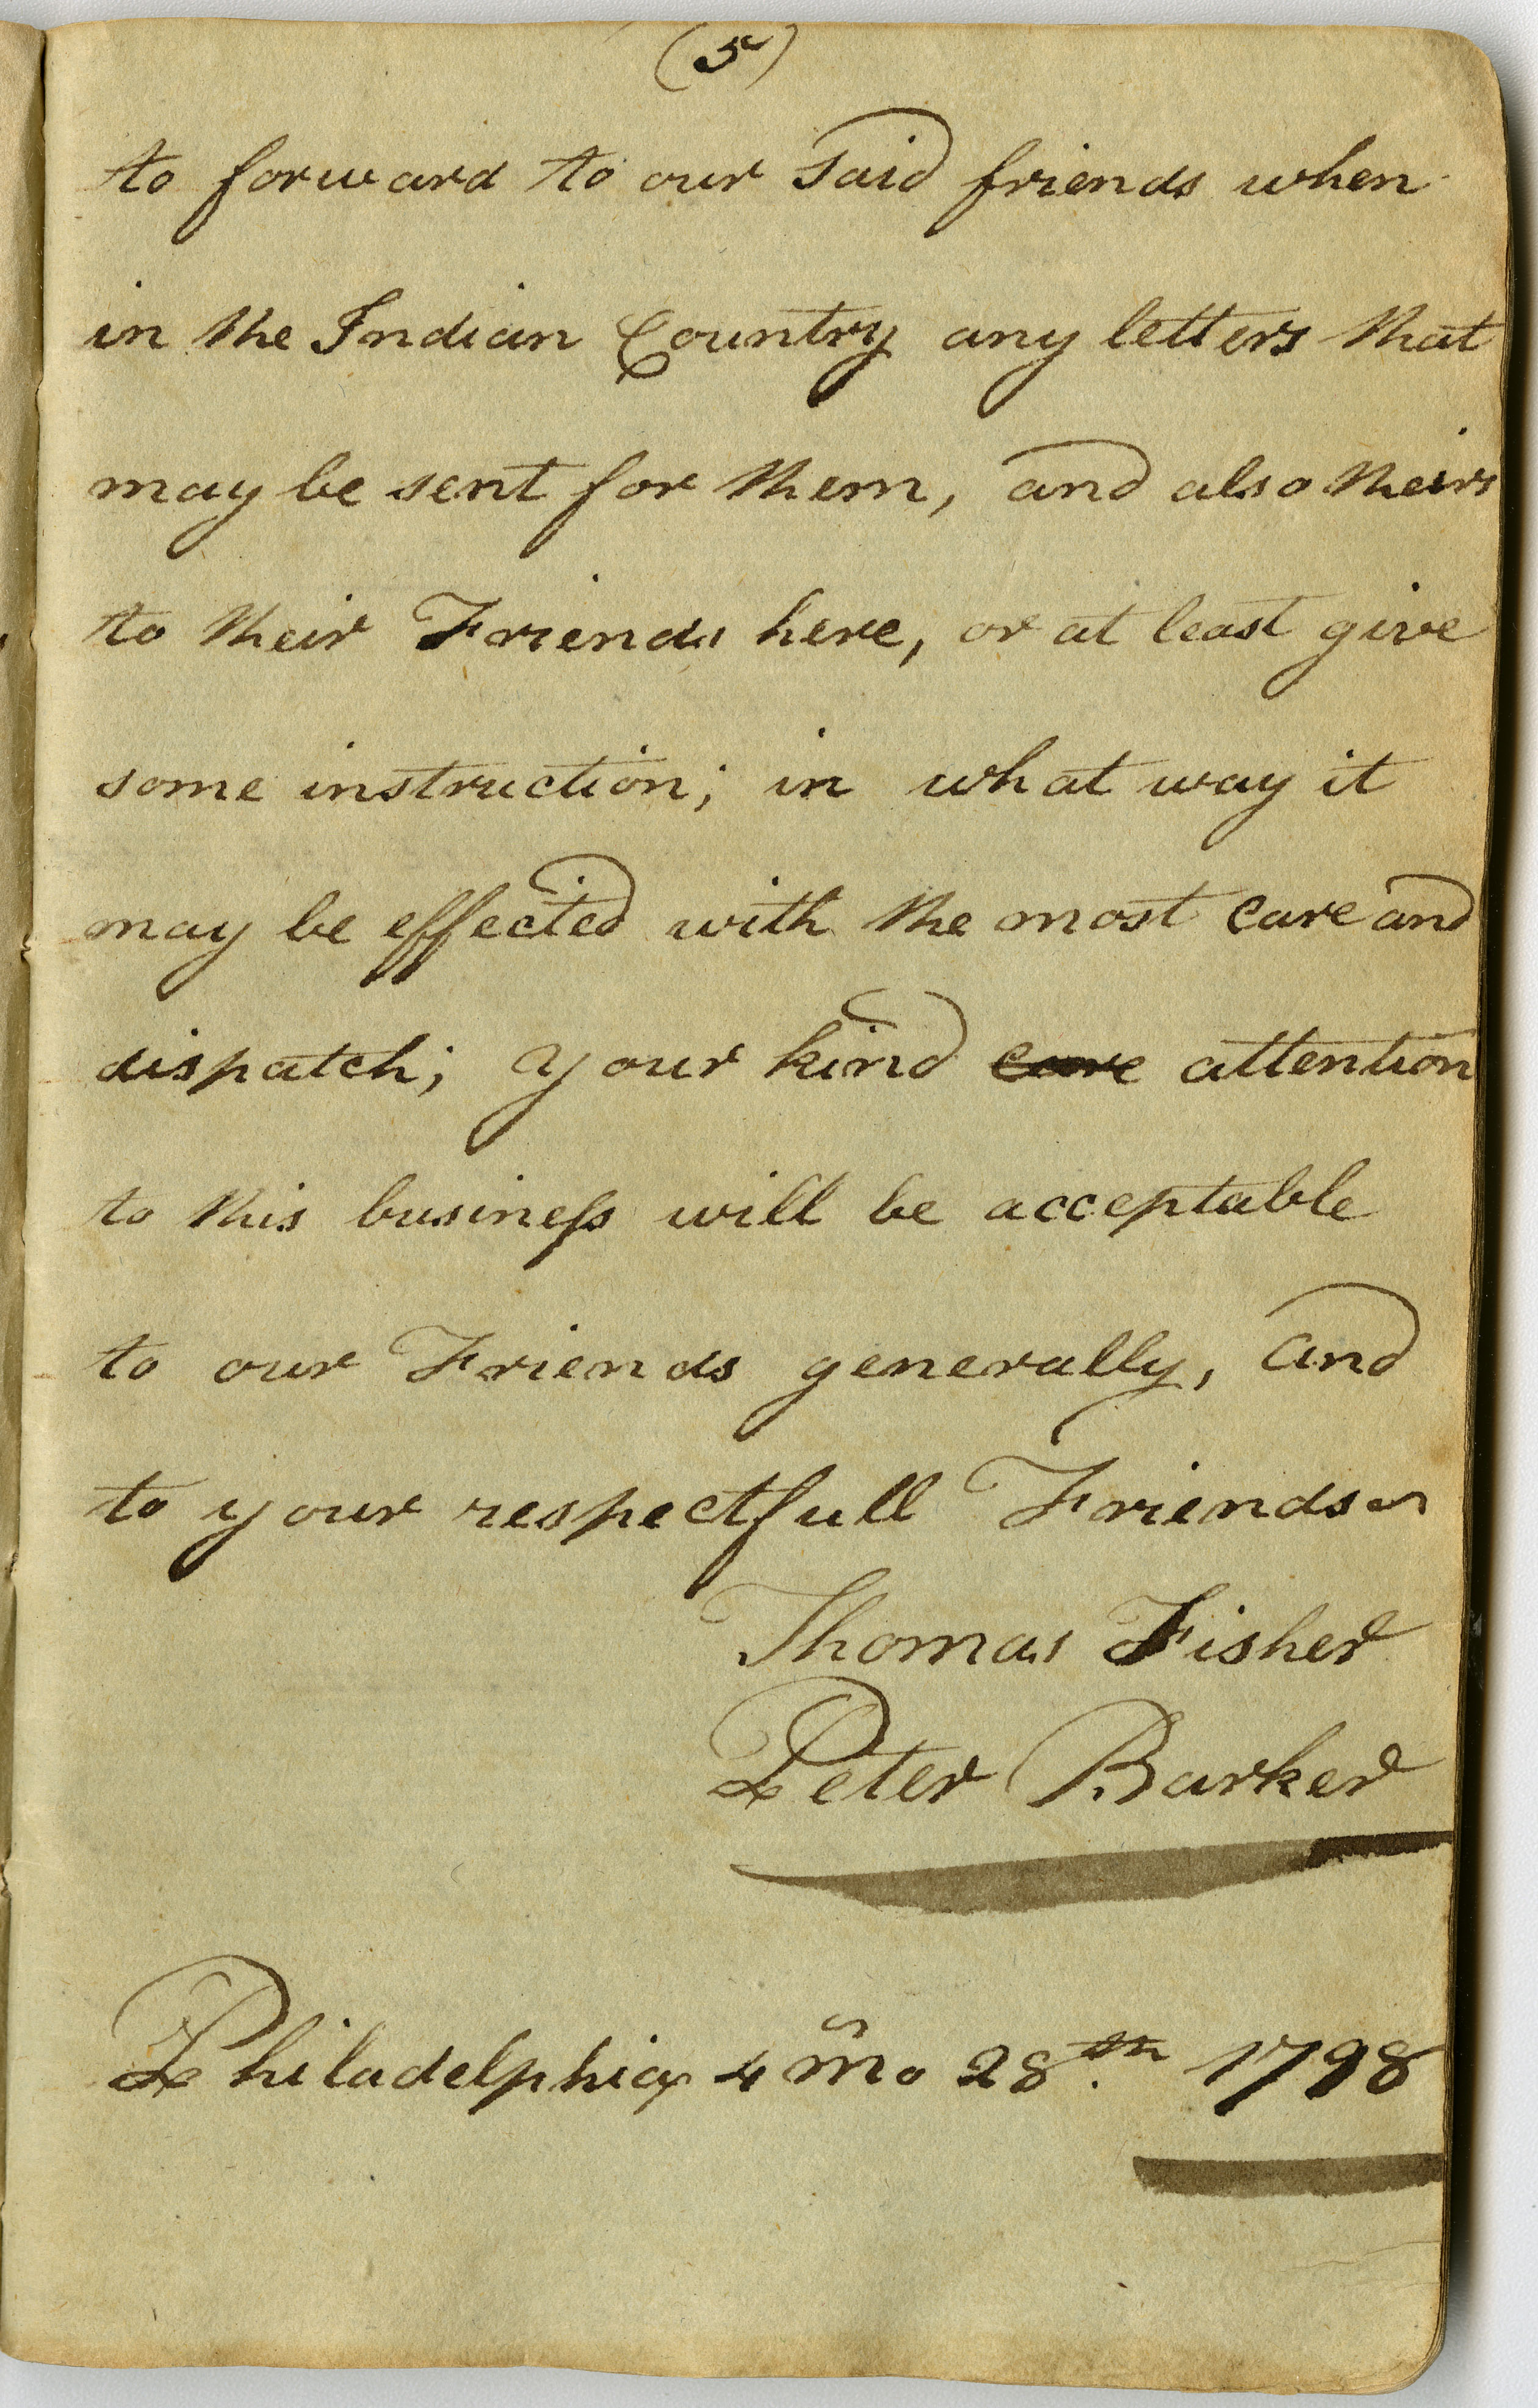 (5)
to forward to our said friends when
in the Indian Country any letters that
may be sent for them, and also theirs
to their Friends here, or at least give
some instruction; in what way it
may be effected with the most care and
dispatch; your kind care attention
to this business will be acceptable
to our Friends generally, and
to your respectfull Friends
Thomas Fisher
Peter Barker
Philadelphia 4 mo 28th 1798